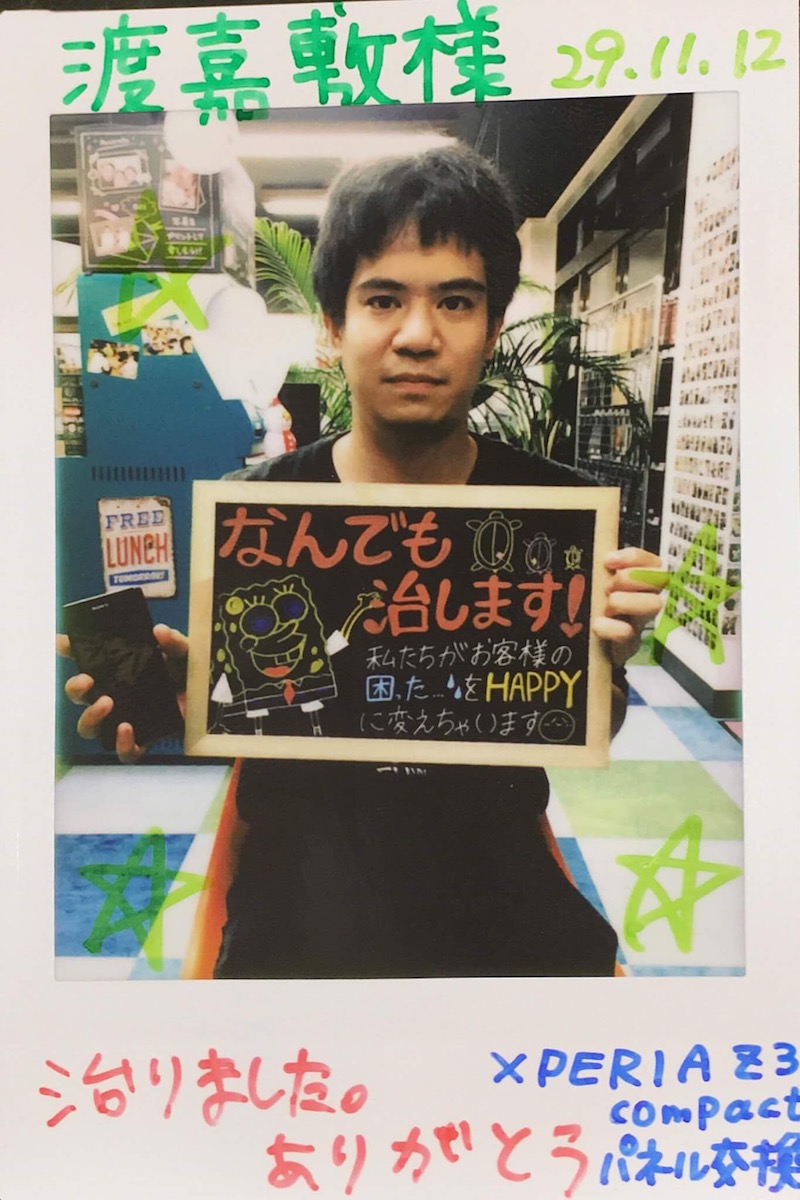 渡嘉敷様 29.11.12
FREE
LUNCH
TOMORROW!
なんでも
治します!
私たちがお客様の
困った…をHAPPY
に変えちゃいます
治りました。
ありがとう
XPERIA Z3
compact
パネル交換
SONY